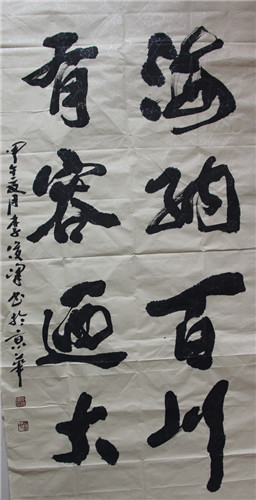 海纳百川
有容迺大
甲午夏月李俊峰书於京华